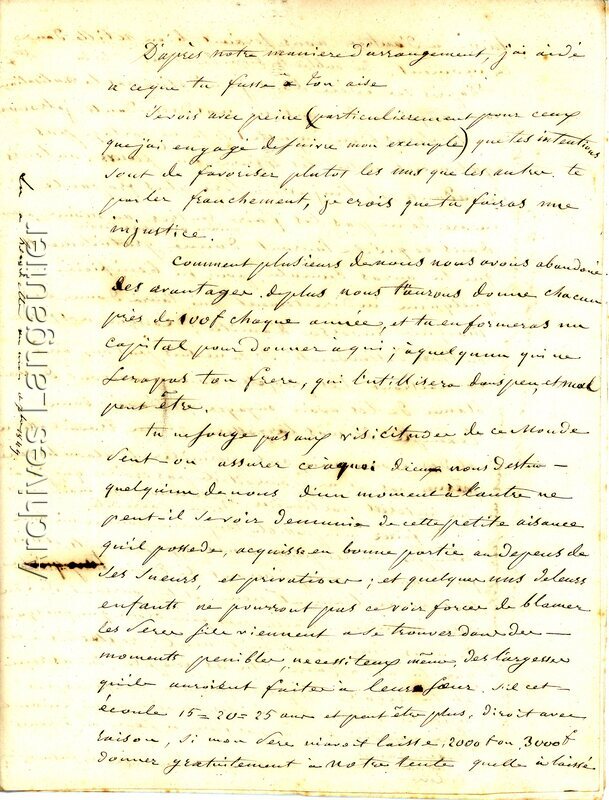 D'après notre maniere d'arrangement, j'ai aidé
a ceque tu fusse a ton aise
Je vois avec peine (particulierement pour ceux
que j'ai engagé de suivre mon exemple) que tes intentions
sont de favoriser plutot les uns que les autre. te
parler franchement, je crois que tu fairas une
injustice.
Comment plusieurs de nous nous avons abandoné
des avantages. deplus nous t'aurons donne chacun
près de 100f chaque année, et tu en formeras un
capital pour donner à qui; à quelquun qui ne
sera pas ton frere, qui l'utillisera dans peu, et mal
peut être.
tu ne songe pas aux visicitudes de ce Monde
peut-on assurer ce à quoi dieu nous destine
quelqu'un de nous d'un moment à l'autre ne
peut-il se voir demunie de cette petite aisance
qu'il possede, acquise en bonne partie au depens de
ses sueurs, et privations; et quelques uns de leurs
enfants ne pourront pas ce voir forcé de blamer
les Peres s'ils viennent a se trouver dans des
moments penibles, necessiteux même, des largesses
qu'ils auroient faite à leur sœur. s'il cet
écoulé 15 = 20 = 25 ans et peut être plus, diroit avec
raison, si mon Pere n'avoit laissé, 2000f ou 3000f
donner gratuitement a notre tente quelle à laissé
Archives Languarnier